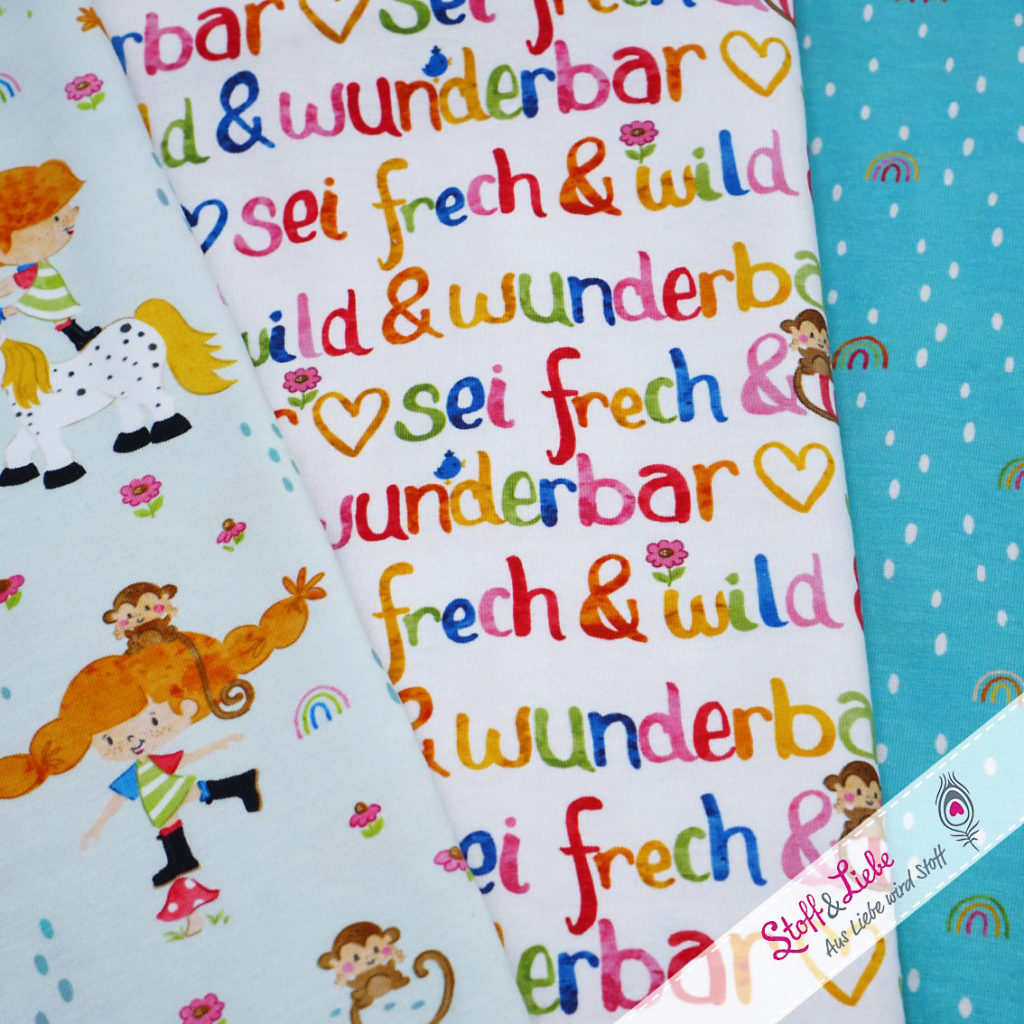 rbar ♡ sei frech
ld & wunderbar ♡
♡ sei frech & wild
wild & wunderba
r ♡ sei frech &
wunderbar ♡
frech & wild
& wunderba
ei frech &
erbar ♡
Stoff & Liebe
Aus Liebe wird Stoff